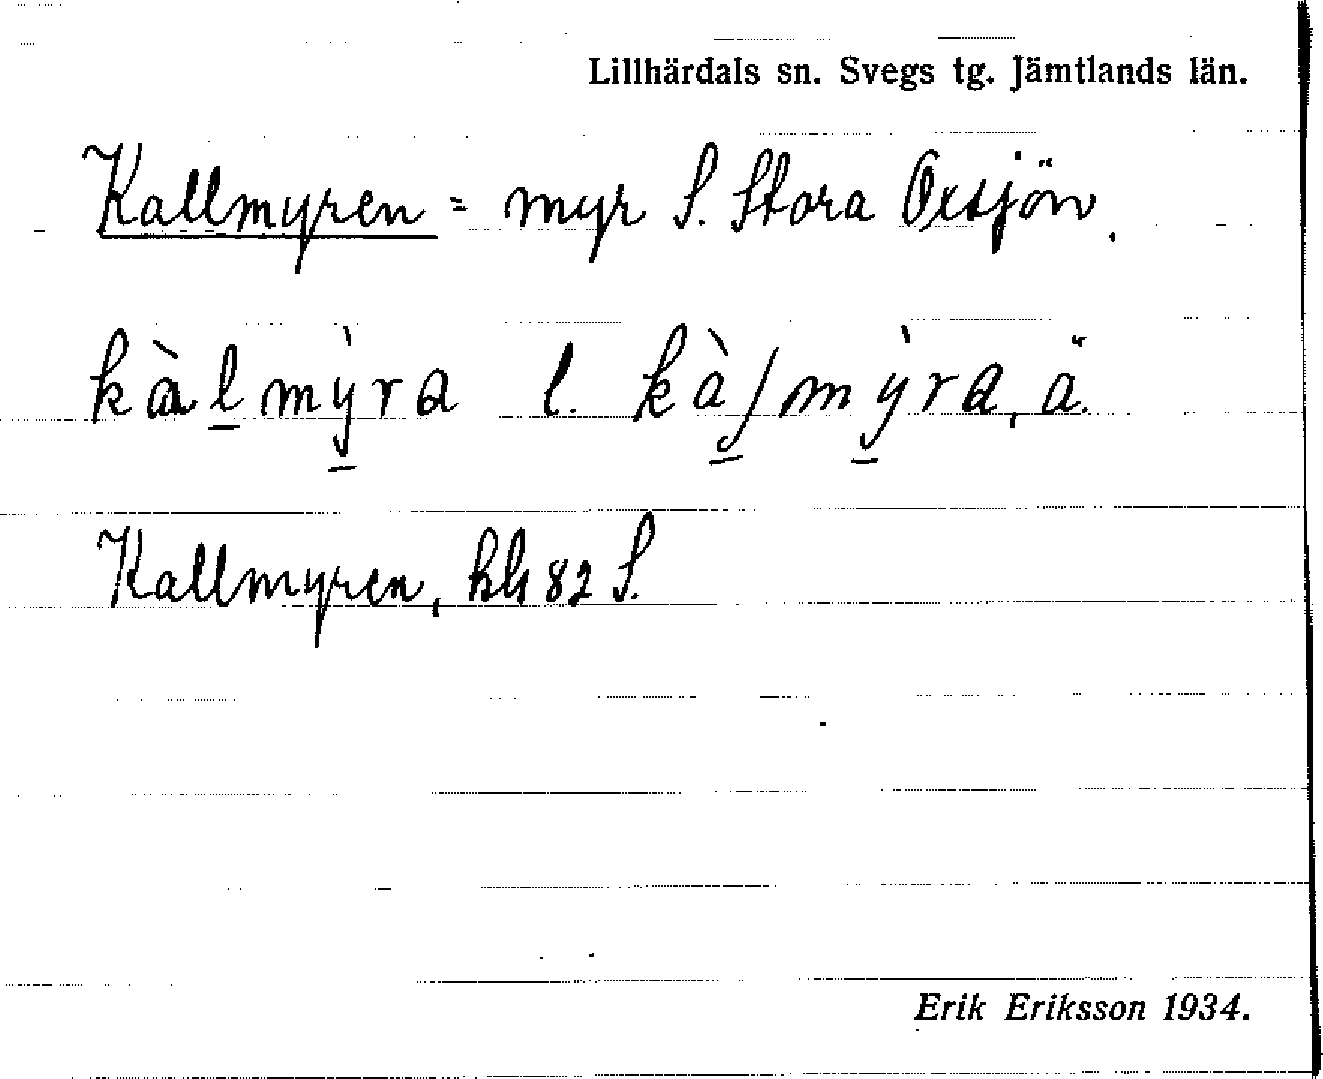 Lillhärdals sn. Svegs tg. Jämtlands län.
Kallmyren = myr S. Stora Oxsjön.
kàl̲mỳ̲ra l. kàʃ̲mỳ̲ra, ä.
Kallmyren, hbl 82 S.
Erik Eriksson 1934.